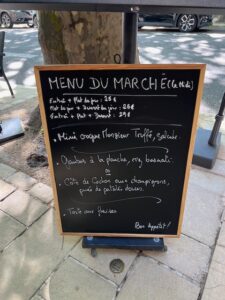 MENU DU MARCHÉ (le Midi)
Entrée + Plat du jour : 25 €
Plat du jour + Dessert du jour : 25 €
Entrée + Plat + Dessert : 29 €
• Mini croque Monsieur Truffé, salade
• à la plancha, riz basmati
ou
Côte de Cochon aux champignons,
purée de patate douce.
• Tarte aux fraises
Bon Appétit !